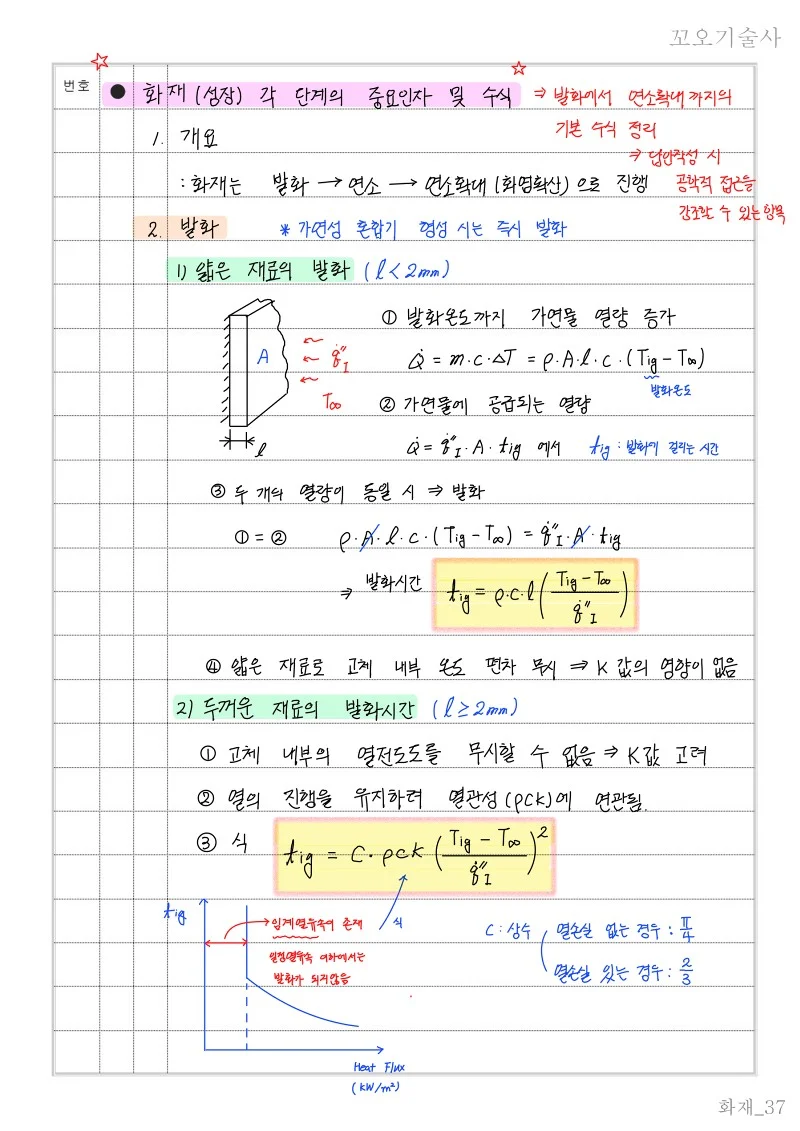 꼬오기술사
번호
● 화재 (성장) 각 단계의 중요인자 및 수식 ⇒ 발화에서 연소확대까지의
기본 수식 정리
⇒ 답안작성 시
공학적 접근을
강조할 수 있는 항목
1. 개요
: 화재는 발화 → 연소 → 연소확대 (화염확산) 으로 진행
2. 발화 * 가연성 혼합기 형성 시는 즉시 발화
1) 얇은 재료의 발화 (l < 2mm)
① 발화온도까지 가연물 열량 증가
A
q̇″I
T∞
l
Q̇ = m·c·ΔT = ρ·A·l·c·(Tig − T∞)
발화온도
② 가연물에 공급되는 열량
Q̇ = q̇″I·A·tig 에서 tig : 발화에 걸리는 시간
③ 두 개의 열량이 동일 시 ⇒ 발화
① = ② ρ·A·l·c·(Tig − T∞) = q̇″I·A·tig
⇒ 발화시간 tig = ρ·c·l ((Tig − T∞) / q̇″I)
④ 얇은 재료로 고체 내부 온도 편차 무시 ⇒ K 값의 영향이 없음
2) 두꺼운 재료의 발화시간 (l ≥ 2mm)
① 고체 내부의 열전도도를 무시할 수 없음 ⇒ K값 고려
② 열의 진행을 유지하려 열관성 (ρck)에 연관됨.
③ 식 tig = C·ρck ((Tig − T∞) / q̇″I)²
tig
임계열유속이 존재
일정열유속 이하에서는
발화가 되지않음
식
C : 상수 열손실 없는 경우 : π/4
열손실 있는 경우 : 2/3
Heat Flux
(kW/m²)
화재_37